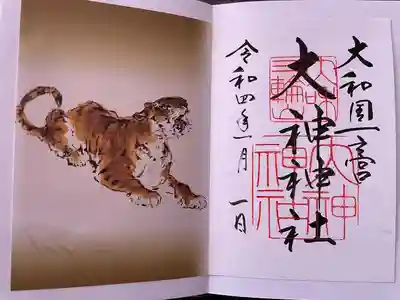 大和国一之宮
大神神社
三輪明神
大神神社
令和四年一月一日